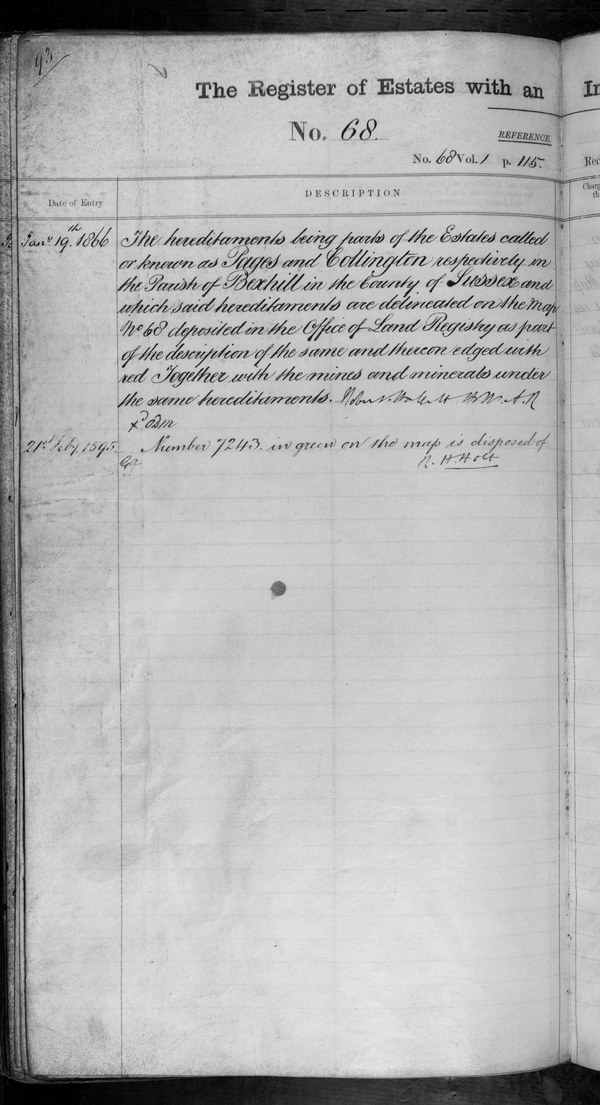 93
The Register of Estates with an
No. 68.
REFERENCE
No. 68 Vol. 1 p. 115.
Date of Entry
DESCRIPTION
Jany. 19th. 1866
The hereditaments being parts of the Estates called
or known as Pages and Collington respectively in
the Parish of Bexhill in the County of Sussex and
which said hereditaments are delineated on the Map
No 68 deposited in the Office of Land Registry as part
of the description of the same and thereon edged with
red Together with the mines and minerals under
the same hereditaments.
21st Feby 1895.
Number 7243. in green on the map is disposed of
R. H. Holt
In